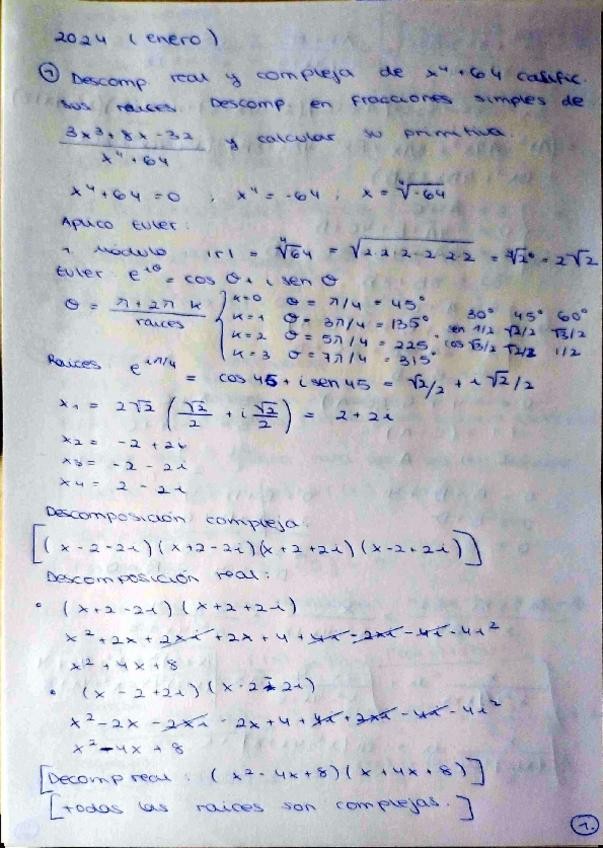 2024 (enero)
① Descomp. real y compleja de x⁴+64 calific.
sus raices. Descomp. en fracciones simples de
3x³+8x-32 / x⁴+64 y calcular su primitiva.
x⁴+64=0 ; x⁴=-64 ; x = ⁴√-64
Aplico Euler:
1. Módulo |r| = ⁴√64 = √2·2·2·2·2·2 = = 2√2
Euler: e^iθ = cos θ + i sen θ
θ = π+2π k / raices { k=0 θ = π/4 = 45°
k=1 θ = 3π/4 = 135°
k=2 θ = 5π/4 = 225
k=3 θ = 7π/4 = 315°
30° 45° 60°
sen 1/2 √2/2 √3/2
cos √3/2 √2/2 1/2
Raices e^iπ/4 = cos 45 + i sen 45 = √2/2 + i √2/2
x₁ = 2√2 (√2/2 + i √2/2) = 2+2i
x₂ = -2+2i
x₃ = -2-2i
x₄ = 2-2i
Descomposición compleja:
[(x-2-2i)(x+2-2i)(x+2+2i)(x-2+2i)]
Descomposición real:
• (x+2-2i)(x+2+2i)
x²+2x+2xi+2x+4+4i-2xi-4i-4i²
x²+4x+8
• (x-2+2i)(x-2-2i)
x²-2x-2xi-2x+4+4i+2xi-4i-4i²
x²-4x+8
[Decomp real: (x²-4x+8)(x+4x+8)]
[todas las raices son complejas.]
1.